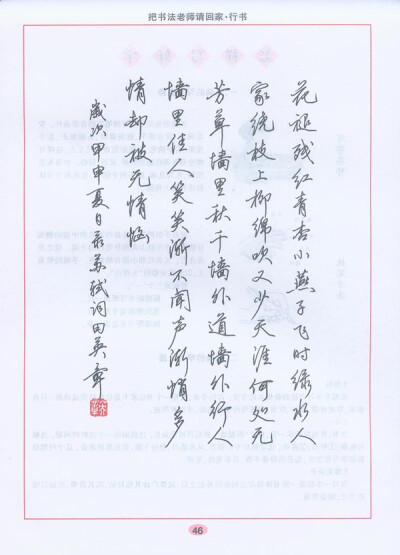 把书法老师请回家·行书
花褪残红青杏小燕子飞时绿水人
家绕枝上柳绵吹又少天涯何处无
芳草墙里秋千墙外道墙外行人
墙里佳人笑笑渐不闻声渐悄多
情却被无情恼
岁次甲申夏日录苏轼词田英章
46